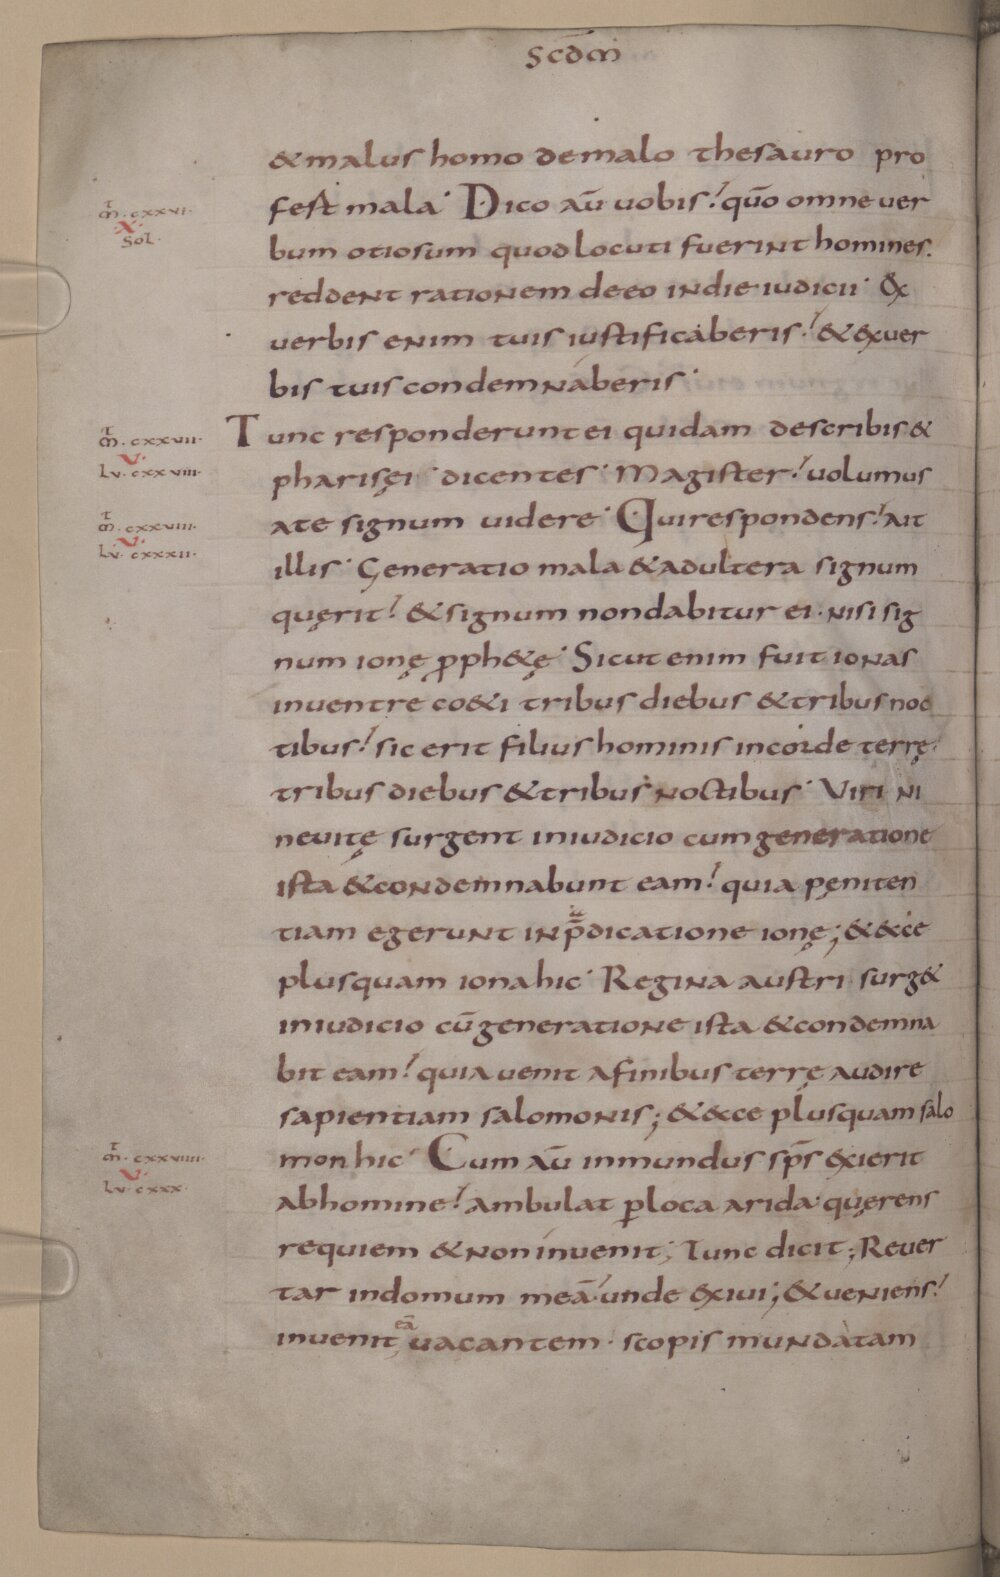 Scdm̄
& malus homo de malo thesauro pro
fert mala. Dico aū uobis. quō omne uer
bum otiosum quod locuti fuerint homines.
reddent rationem de eo in die iudicii. Ex
verbis enim tuis iustificaberis. & ex uer
bis tuis condemnaberis.
Tunc responderunt ei quidam de scribis &
pharisęi dicentes. Magister. uolumus
a te signum uidere. Qui respondens. ait
illis. Generatio mala & adultera signum
quęrit. & signum non dabitur ei. nisi sig
num ionę ꝓph&ę. Sicut enim fuit ionas
in uentre co&i tribus diebus & tribus noc
tibus. sic erit filius hominis in corde terrę.
tribus diebus & tribus noctibus. Viri ni
nevitę surgent in iudicio cum generatione
ista & condemnabunt eam. quia pęniten
tiam egerunt in p̄dicatione ionę; & ecce
plusquam iona hic. Regina austri surg&
in iudicio cū generatione ista & condemna
bit eam. quia uenit a finibus terrę audire
sapientiam salomonis; & ecce plusquam salo
mon hic. Cum aū inmundus sp̄s exierit
ab homine. ambulat ꝑ loca arida quęrens
requiem & non inuenit; Tunc dicit; Reuer
tar in domum meā unde exiui; & ueniens.
inuenit eā uacantem. scopis mundatam
m̄t. cxxvi.
X.
Sol.
m̄t. cxxvii.
V.
Lv. cxxviii.
m̄t. cxxviii.
V.
Lv. cxxxii.
m̄t. cxxviiii.
V.
Lv. cxxx.